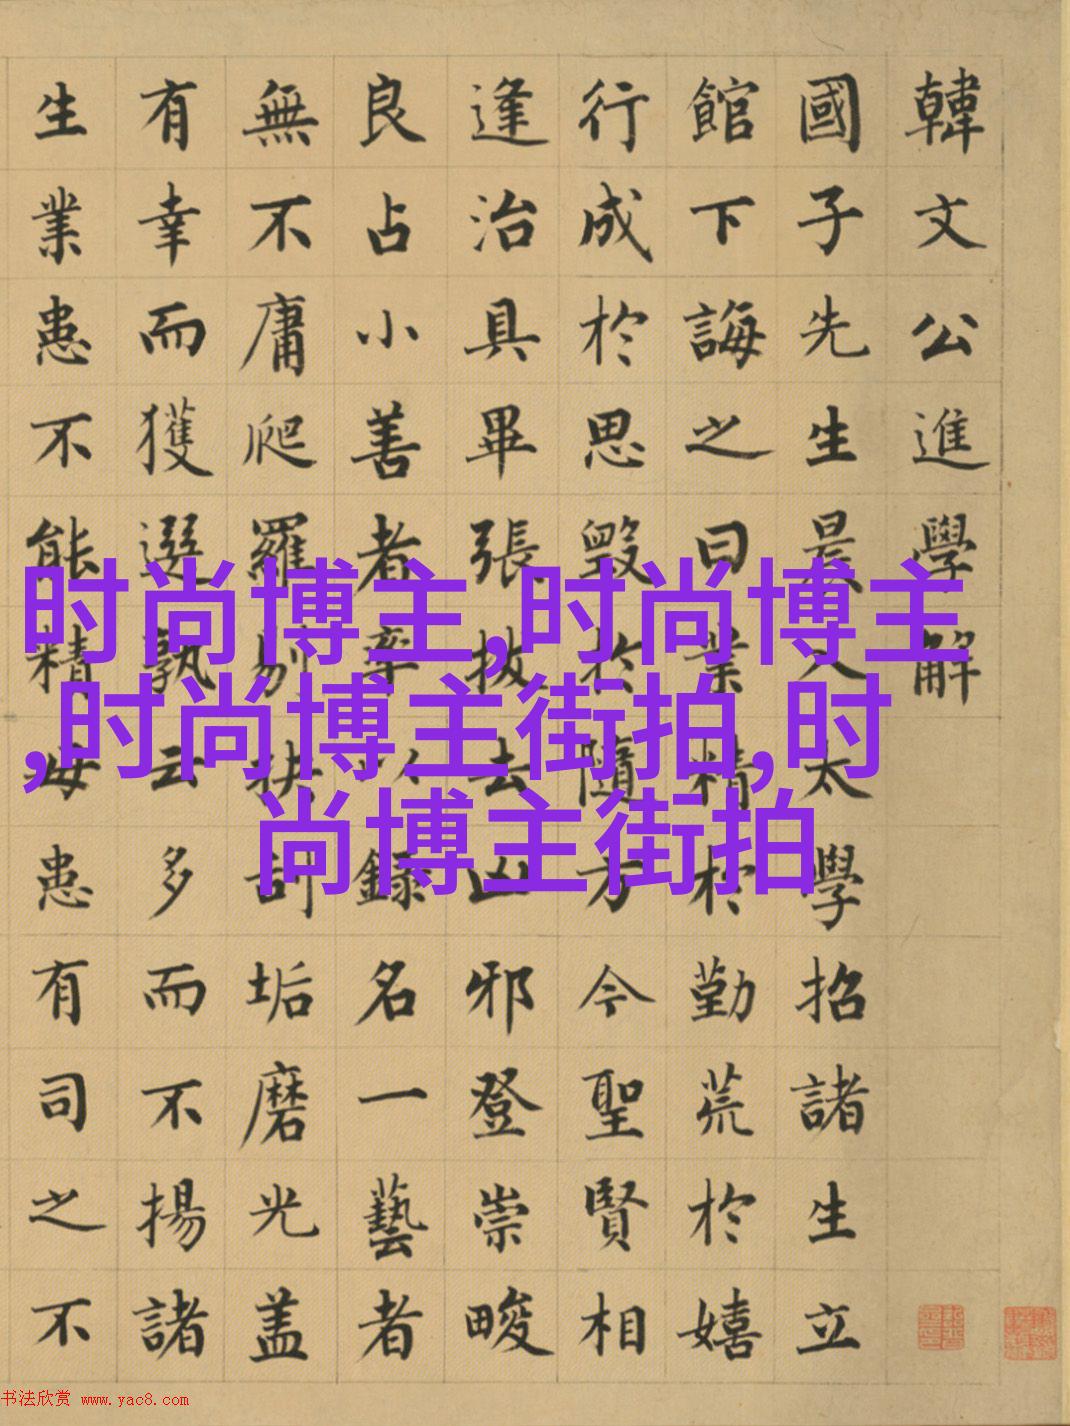 韓文公進學解
國子先生晨入太學招諸生立
館下誨之曰業精於勤荒於嬉
行成於思毀於隨方今聖賢相
逢治具畢張拔去凶邪登崇畯
良占小善者率以錄名一藝者
無不庸爬羅剔抉刮垢磨光盖
有幸而獲選孰云多而不揚諸
生業患不能精毋患有司之不
时尚博主,时尚博主
,时尚博主街拍,时
尚博主街拍
书法欣赏 www.yac8.com